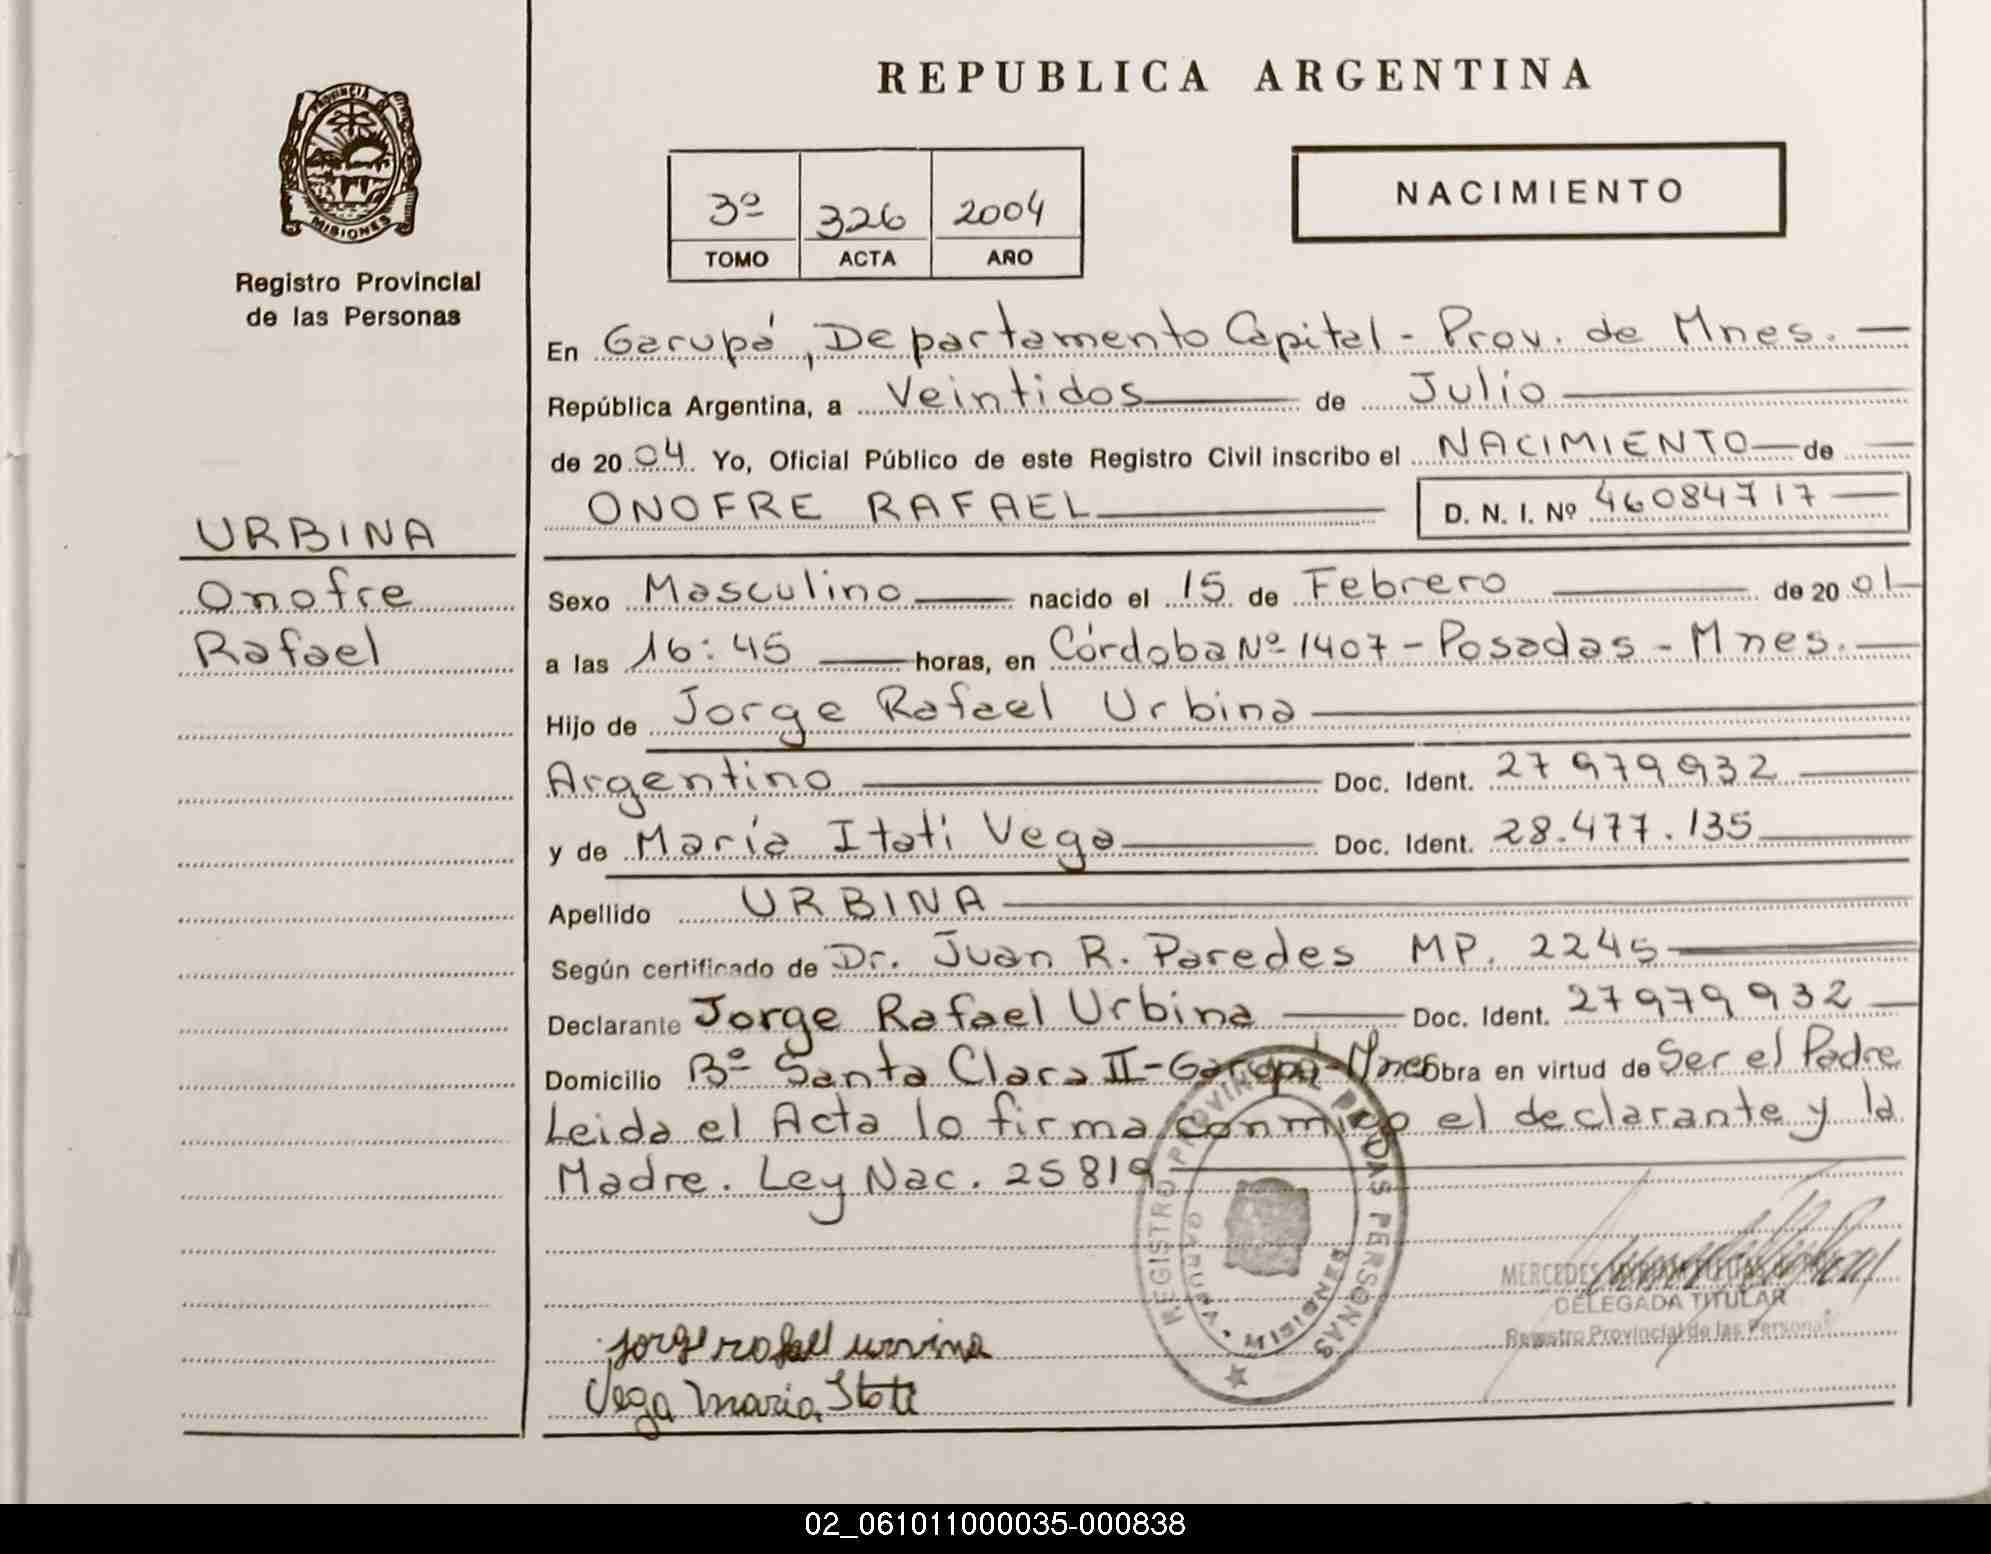 REPUBLICA ARGENTINA
PROVINCIA DE
MISIONES
Registro Provincial
de las Personas
3º 326 2004
TOMO ACTA AÑO
NACIMIENTO
En Garupá, Departamento Capital - Prov. de Mnes.
República Argentina, a Veintidos de Julio
de 2004 Yo, Oficial Público de este Registro Civil inscribo el NACIMIENTO de
ONOFRE RAFAEL D. N. I. Nº 46084717
URBINA
Onofre
Rafael
Sexo Masculino nacido el 15 de Febrero de 2001
a las 16:45 horas, en Córdoba Nº 1407 - Posadas - Mnes.
Hijo de Jorge Rafael Urbina
Argentino Doc. Ident. 27979932
y de María Itati Vega Doc. Ident. 28.477.135
Apellido URBINA
Según certificado de Dr. Juan R. Paredes MP. 2245
Declarante Jorge Rafael Urbina Doc. Ident. 27979932
Domicilio Bº Santa Clara II - Garupá - Mnes Obra en virtud de Ser el Padre
Leida el Acta lo firma conmigo el declarante y la
Madre. Ley Nac. 25819
REGISTRO PROVINCIAL DE LAS PERSONAS
GARUPA
MERCEDES
DELEGADA TITULAR
Registro Provincial de las Personas
jorge rafael urvina
Vega Maria Itati
02_061011000035-000838